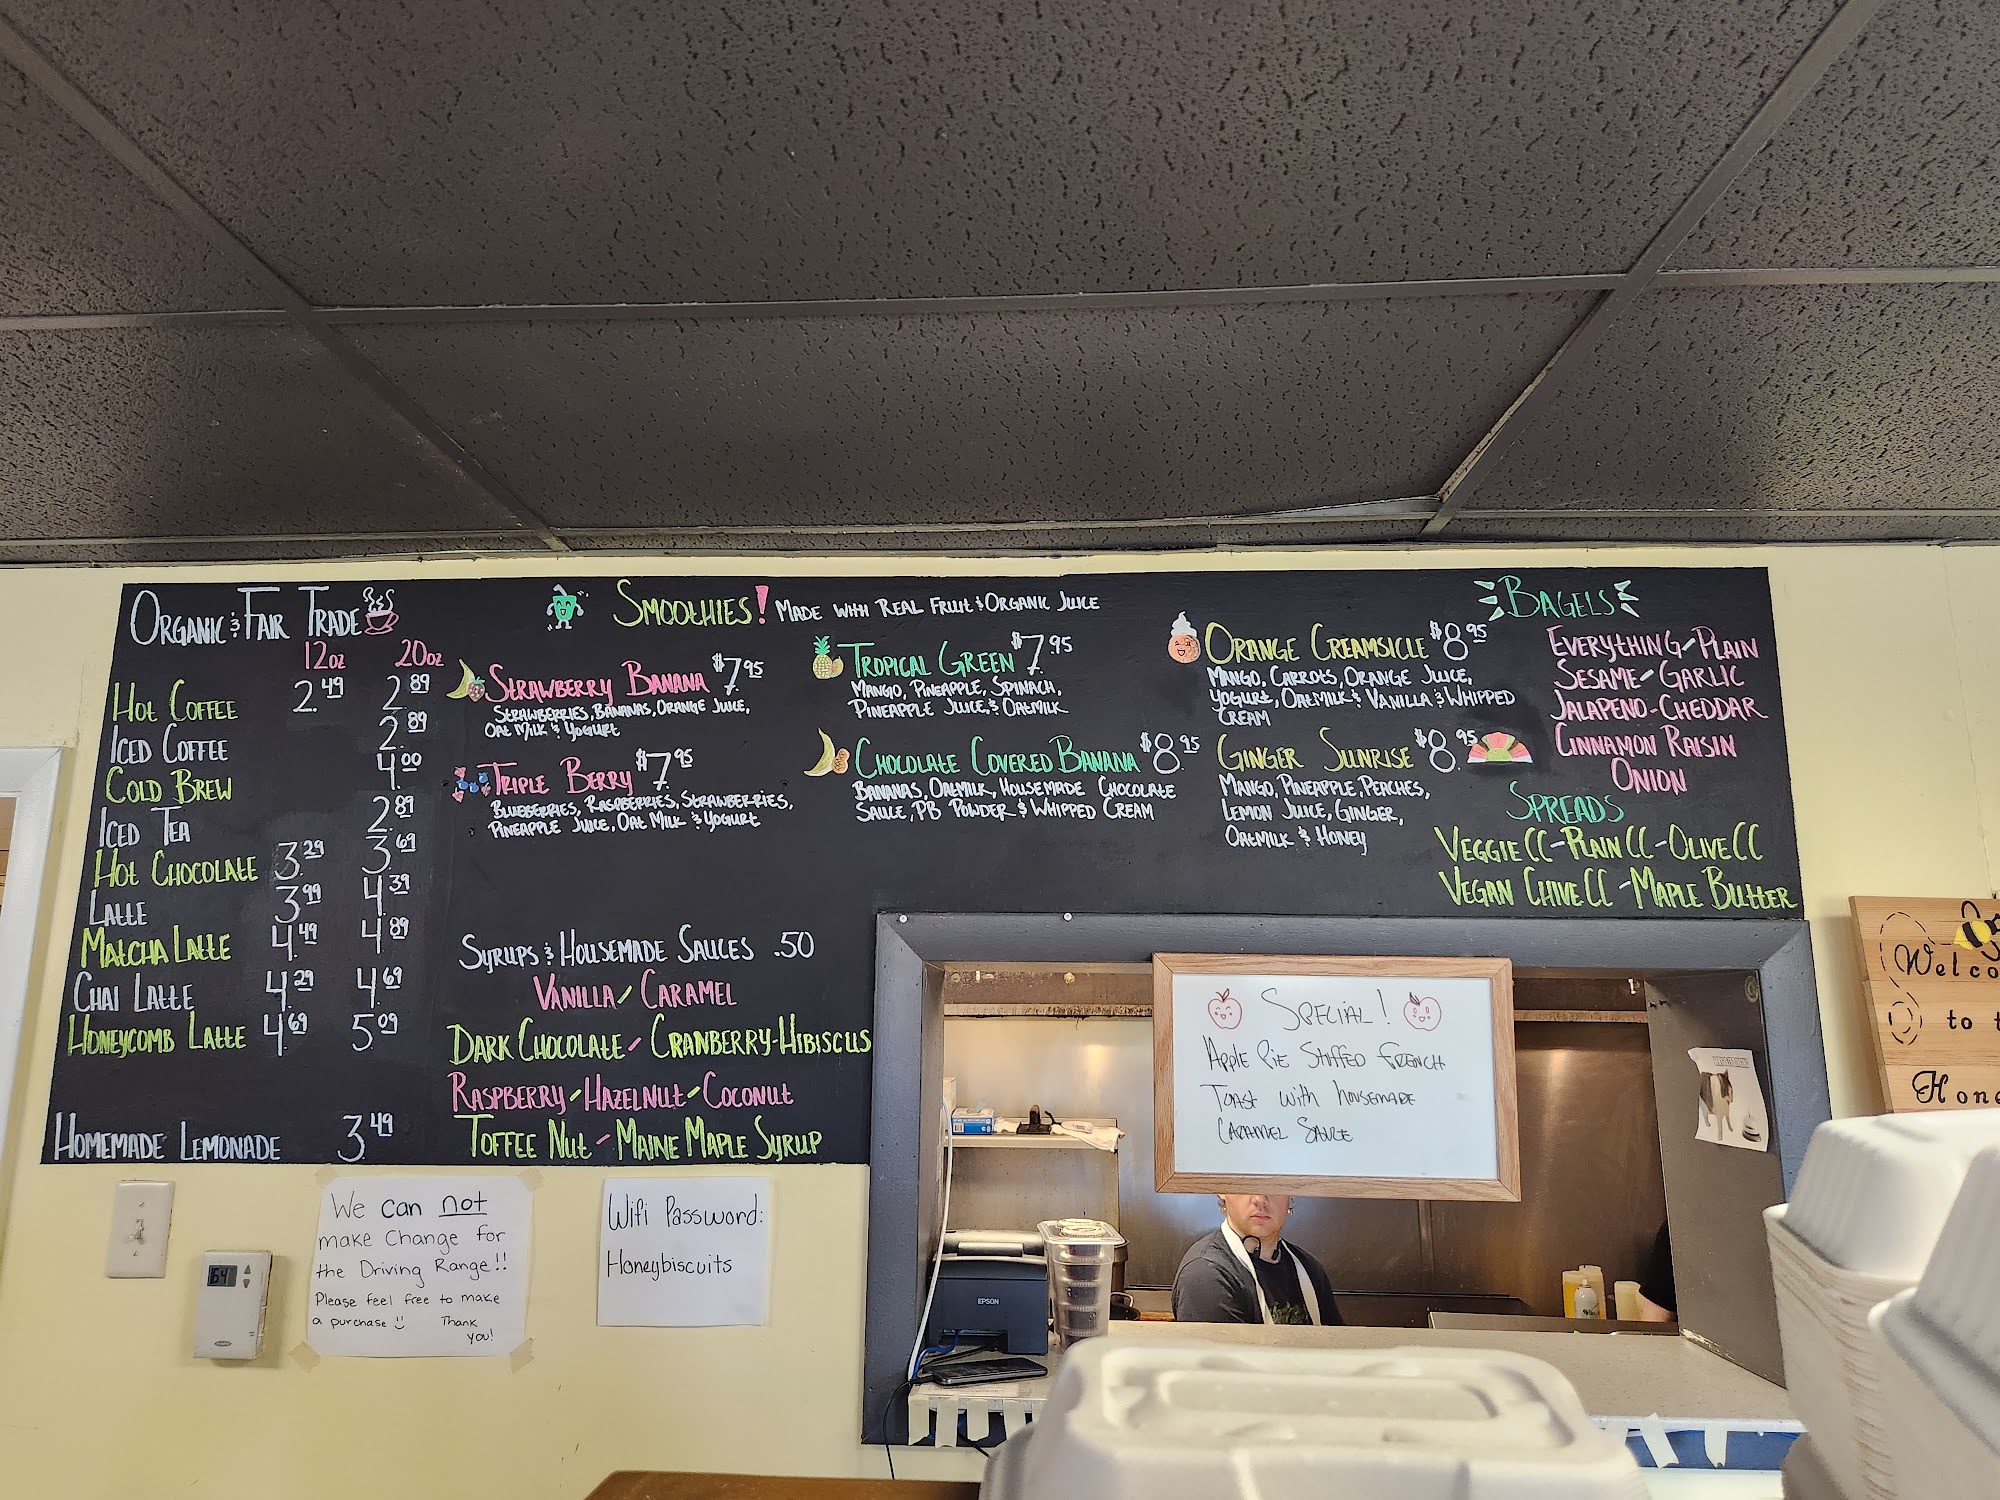 ORGANIC & FAIR TRADE
12oz 20oz
HOT COFFEE 2.49 2.89
ICED COFFEE 2.89
COLD BREW 4.00
ICED TEA 2.89
HOT CHOCOLATE 3.29 3.69
LATTE 3.99 4.39
MATCHA LATTE 4.49 4.89
CHAI LATTE 4.29 4.69
HONEYCOMB LATTE 4.69 5.09
HOMEMADE LEMONADE 3.49
SMOOTHIES! MADE WITH REAL FRUIT & ORGANIC JUICE
STRAWBERRY BANANA $7.95
STRAWBERRIES, BANANAS, ORANGE JUICE,
OAT MILK & YOGURT
TRIPLE BERRY $7.95
BLUEBERRIES, RASPBERRIES, STRAWBERRIES,
PINEAPPLE JUICE, OAT MILK & YOGURT
TROPICAL GREEN $7.95
MANGO, PINEAPPLE, SPINACH,
PINEAPPLE JUICE, & OATMILK
CHOCOLATE COVERED BANANA $8.95
BANANAS, OATMILK, HOUSEMADE CHOCOLATE
SAUCE, PB POWDER & WHIPPED CREAM
ORANGE CREAMSICLE $8.95
MANGO, CARROTS, ORANGE JUICE,
YOGURT, OATMILK & VANILLA & WHIPPED
CREAM
GINGER SUNRISE $8.95
MANGO, PINEAPPLE, PEACHES,
LEMON JUICE, GINGER,
OATMILK & HONEY
BAGELS
EVERYTHING-PLAIN
SESAME-GARLIC
JALAPENO-CHEDDAR
CINNAMON RAISIN
ONION
SPREADS
VEGGIE CC-PLAIN CC-OLIVE CC
VEGAN CHIVE CC-MAPLE BUTTER
SYRUPS & HOUSEMADE SAUCES .50
VANILLA-CARAMEL
DARK CHOCOLATE-CRANBERRY-HIBISCUS
RASPBERRY-HAZELNUT-COCONUT
TOFFEE NUT-MAINE MAPLE SYRUP
SPECIAL!
APPLE PIE STUFFED FRENCH
TOAST WITH HOUSEMADE
CARAMEL SAUCE
We can not
make Change for
the Driving Range!!
Please feel free to make
a purchase Thank
you!
Wifi Password:
Honeybiscuits
64
EPSON
Welco
to t
Hone